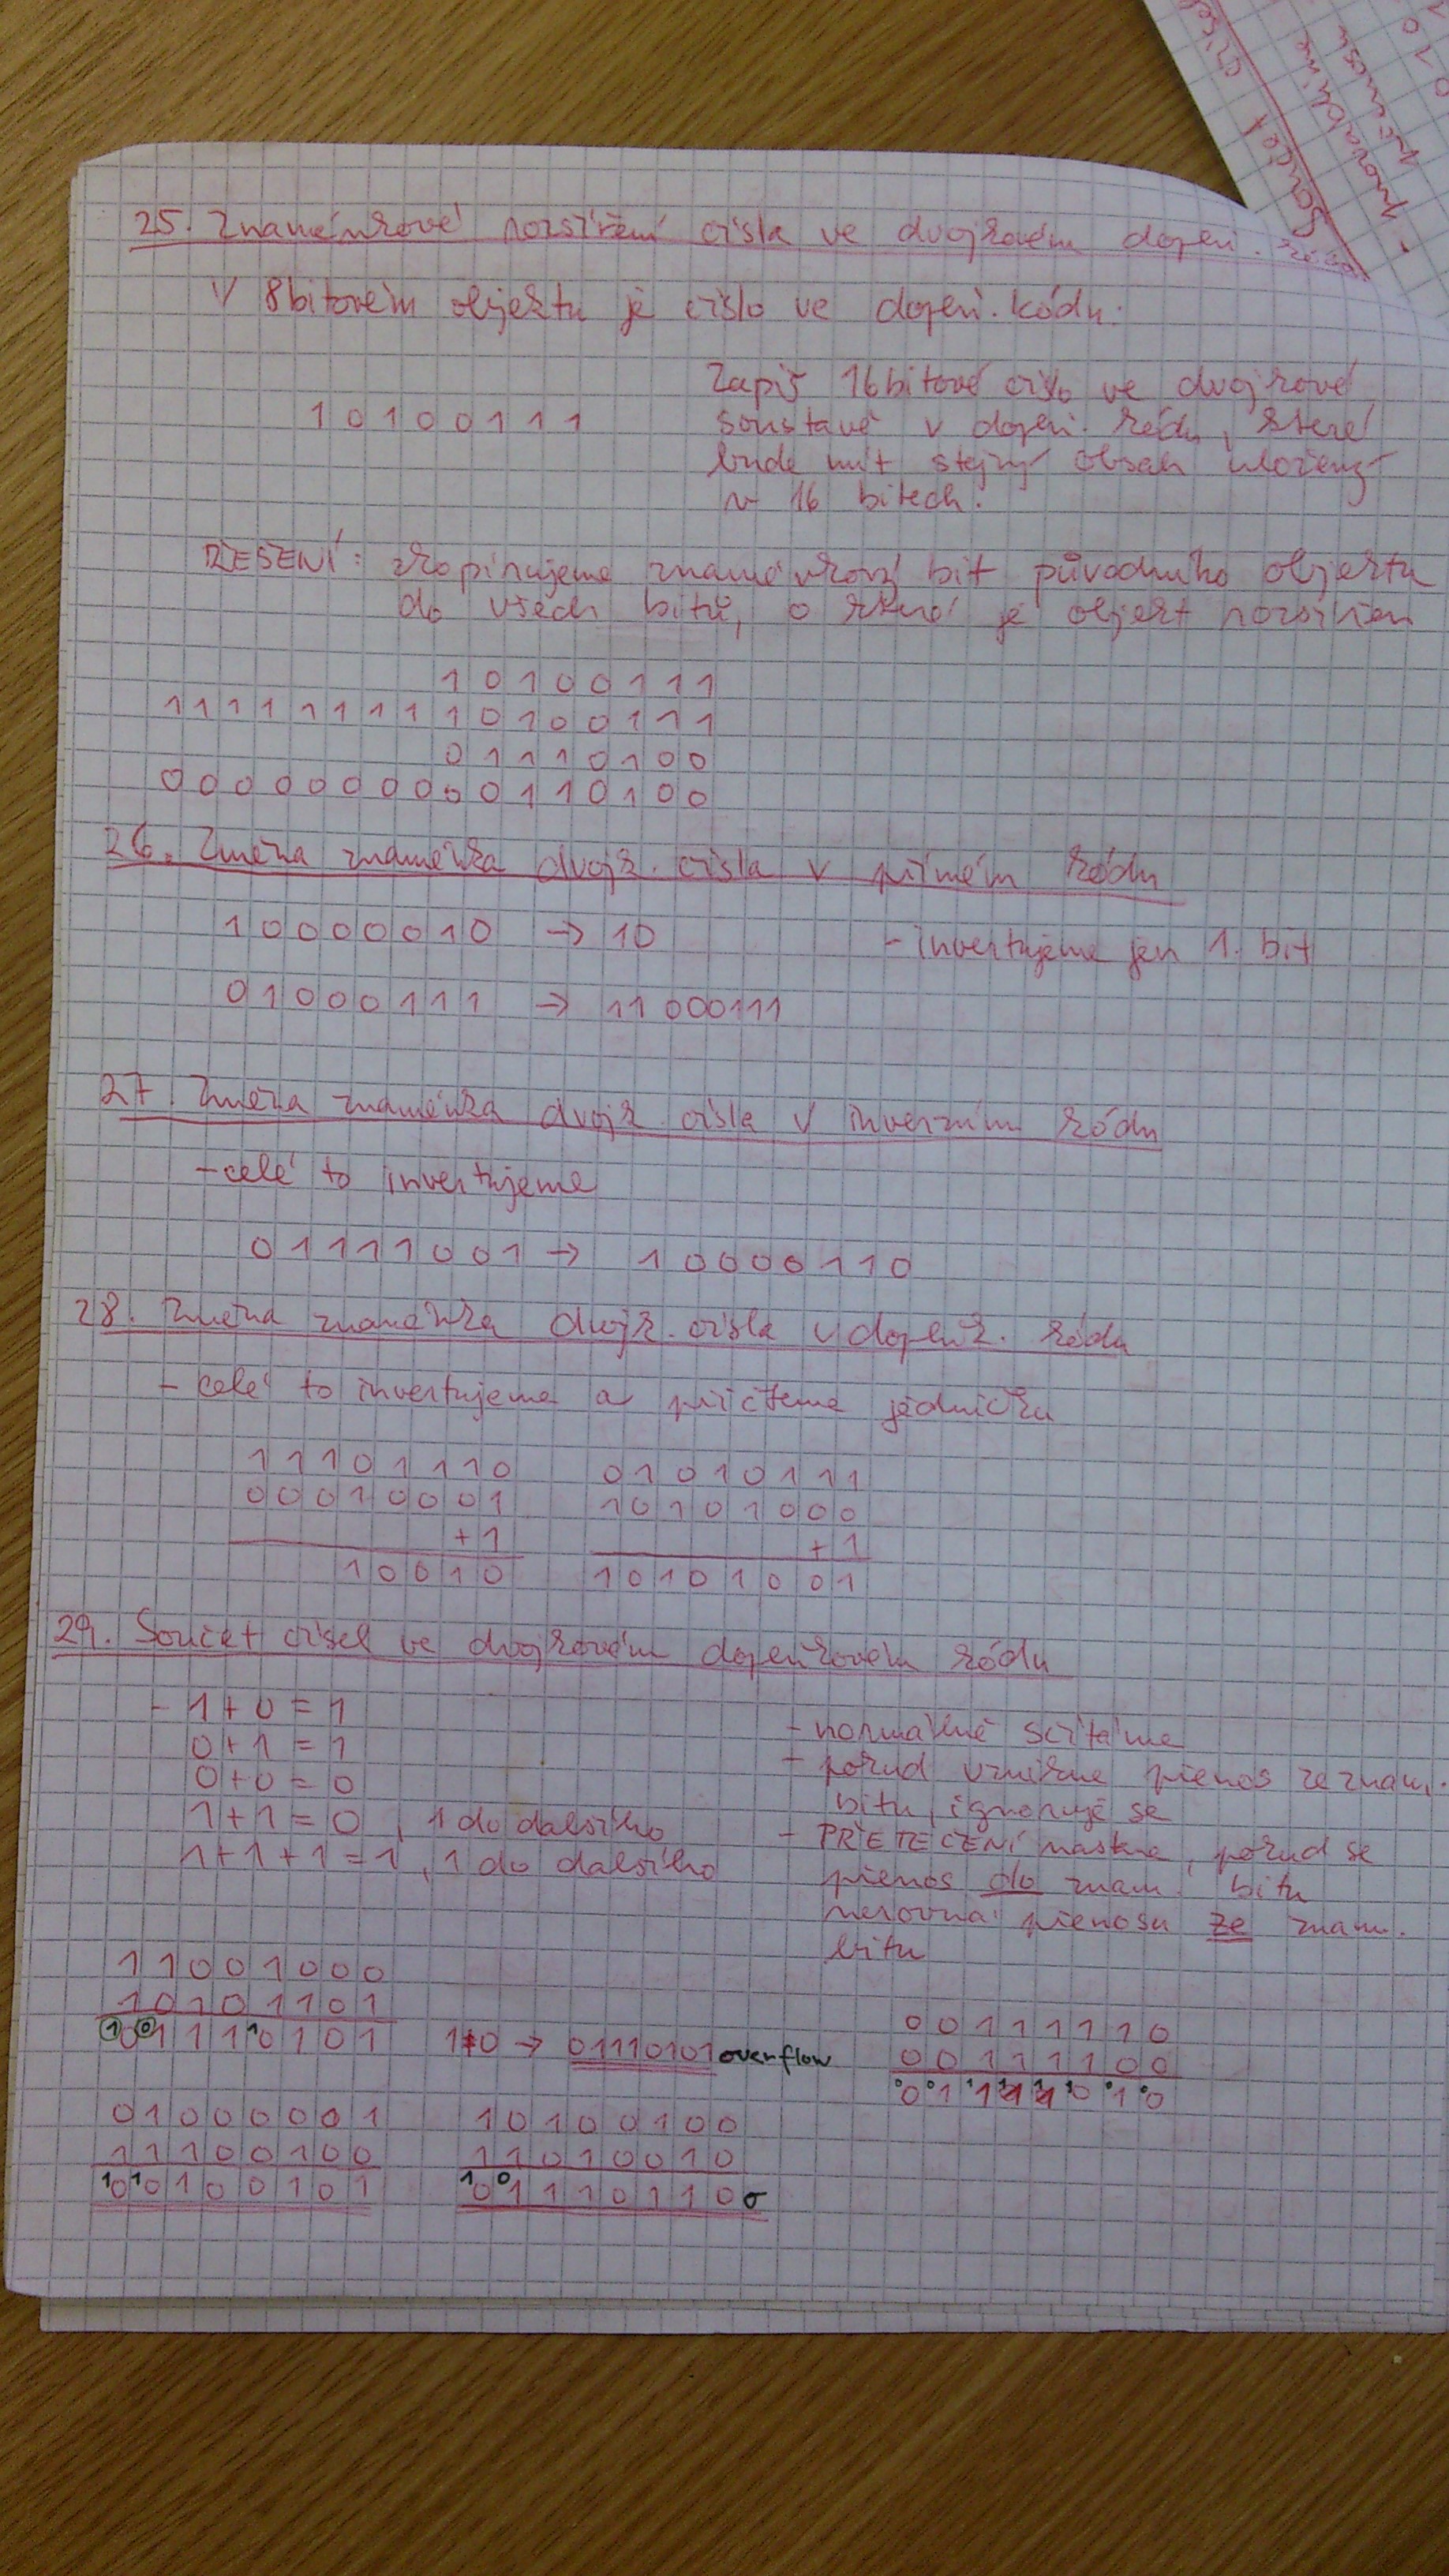 25. Znaménkové rozšíření čísla ve dvojkovém doplň. kódu
V 8bitovém objektu je číslo ve doplň. kódu.
10100111
Zapiš 16bitové číslo ve dvojkové
soustavě v doplň. kódu, které
bude mít stejný obsah uložený
v 16 bitech.
ŘEŠENÍ: zkopírujeme znaménkový bit původního objektu
do všech bitů, o které je objekt rozšířen
10100111
1111111110100111
01110100
0000000000110100
26. Změna znaménka dvojk. čísla v přímém kódu
10000010 → 10
- invertujeme jen 1. bit
01000111 → 11000111
27. Změna znaménka dvojk. čísla v inverzním kódu
- celé to invertujeme
01111001 → 10000110
28. Změna znaménka dvojk. čísla v doplňk. kódu
- celé to invertujeme a přičteme jedničku
11101110 01010111
00010001 10101000
+1 +1
10010 10101001
29. Součet čísel ve dvojkovém doplňkovém kódu
- 1+0=1
0+1=1
0+0=0
1+1=0, 1 do dalšího
1+1+1=1, 1 do dalšího
- normálně sčítáme
- pokud vznikne přenos ze znam.
bitu, ignoruje se
- PŘETEČENÍ nastane, pokud se
přenos do znam. bitu
nerovná přenosu ze znam.
bitu
11001000
10101101
01110101 1≠0 → 01110101 overflow
00111110
00111100
01111010
01000001 10100100
11100100 11010010
00100101 01110110 σ
součet čísel